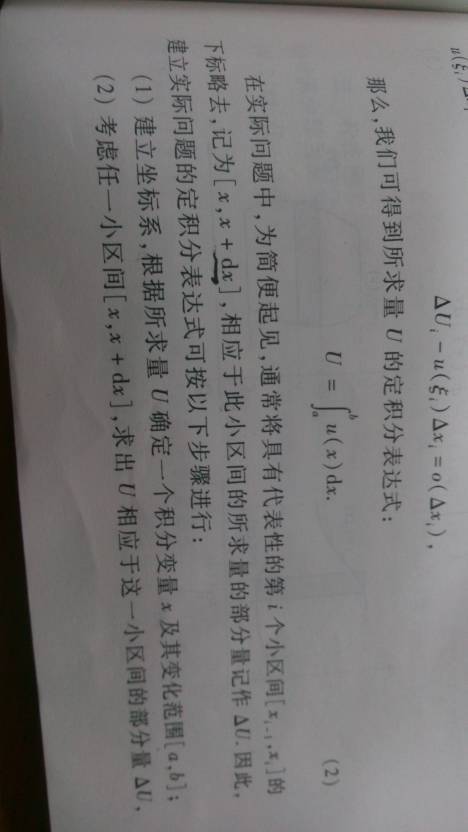 u(ξᵢ)
ΔUᵢ − u(ξᵢ)Δxᵢ = o(Δxᵢ),
那么,我们可得到所求量 U 的定积分表达式:
U = ∫ₐᵇ u(x)dx. (2)
在实际问题中,为简便起见,通常将具有代表性的第 i 个小区间[xᵢ₋₁,xᵢ]的
下标略去,记为[x,x + dx],相应于此小区间的所求量的部分量记作 ΔU.因此,
建立实际问题的定积分表达式可按以下步骤进行:
(1) 建立坐标系,根据所求量 U 确定一个积分变量 x 及其变化范围[a,b];
(2) 考虑任一小区间[x,x + dx],求出 U 相应于这一小区间的部分量 ΔU,